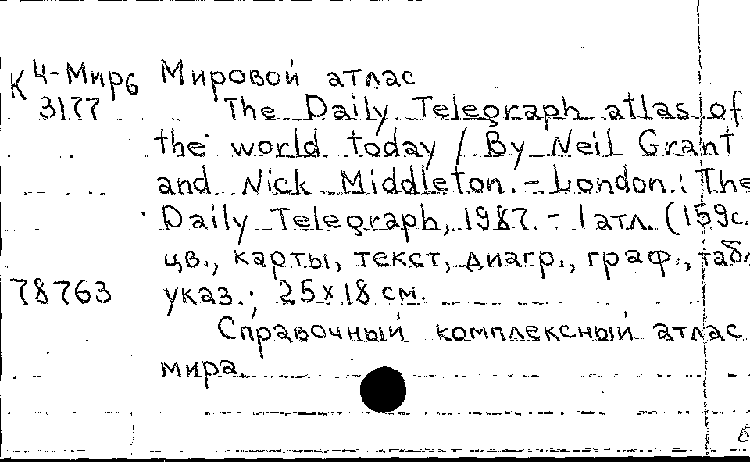 К 4-Мир6 Мировой атлас
3177 The Daily Telegraph atlas of
the world today / By Neil Grant
and Nick Middleton. - London: The
Daily Telegraph, 1987. - 1 атл. (159с.
цв., карты, текст, диагр., граф., табл
78763 указ.; 25х18 см.
Справочный комплексный атлас
мира.